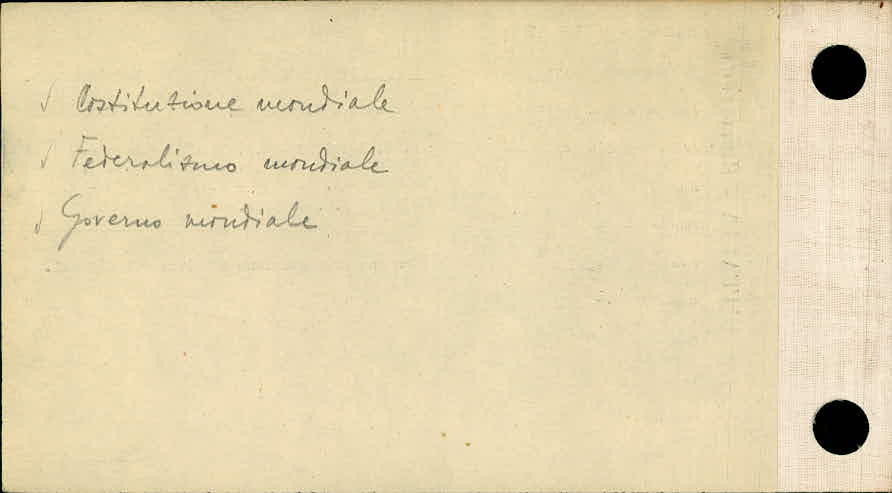 √ Costituzione mondiale
√ Federalismo mondiale
√ Governo mondiale